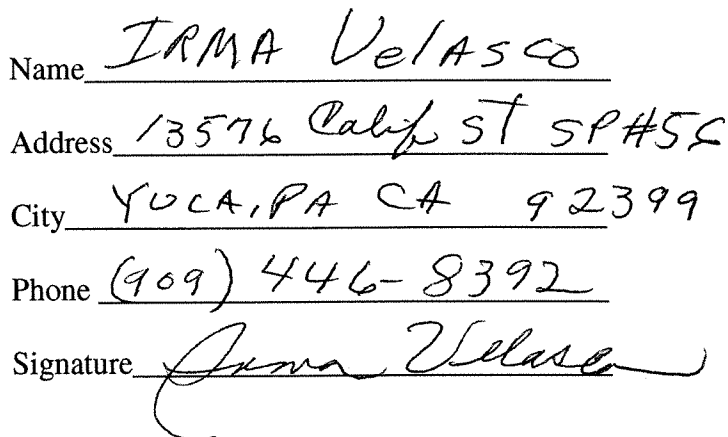 Name IRMA Velasco
Address 13576 Calif ST SP #56
City YUCAIPA CA 92399
Phone (909) 446-8392
Signature Irma Velasco